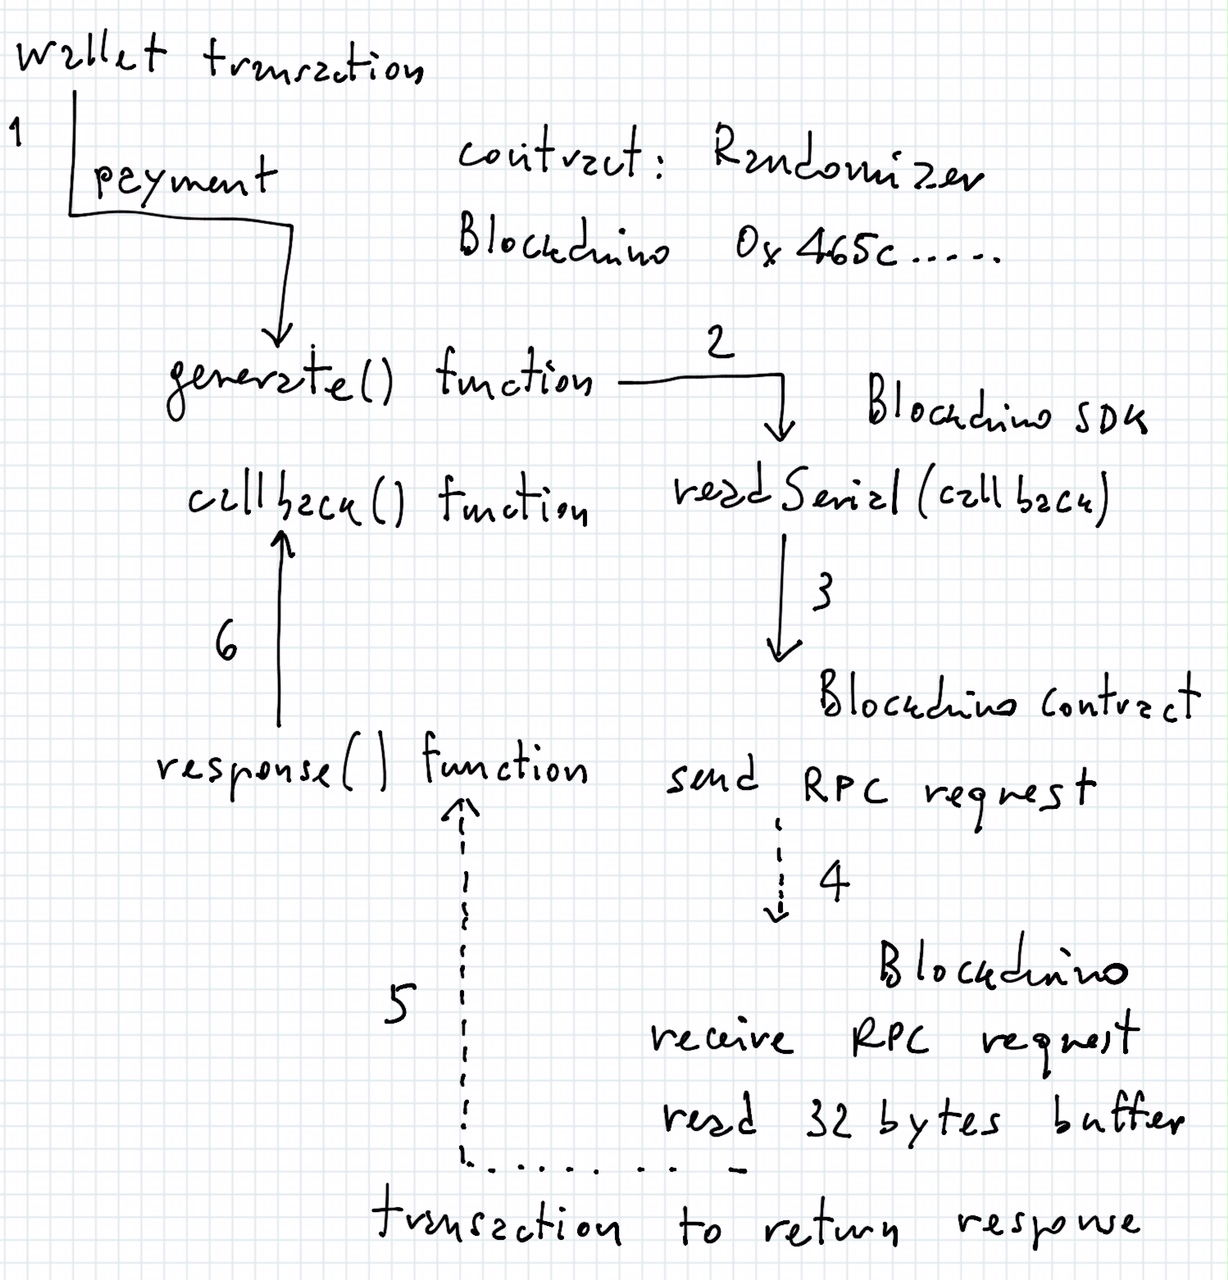 wallet transaction
1
payment
contract: Randomizer
Blockduino 0x465c.....
generate() function
2
Blockduino SDK
callback() function
readSerial(callback)
3
6
Blockduino contract
response() function
send RPC request
4
Blockduino
5
receive RPC request
read 32 bytes buffer
transaction to return response